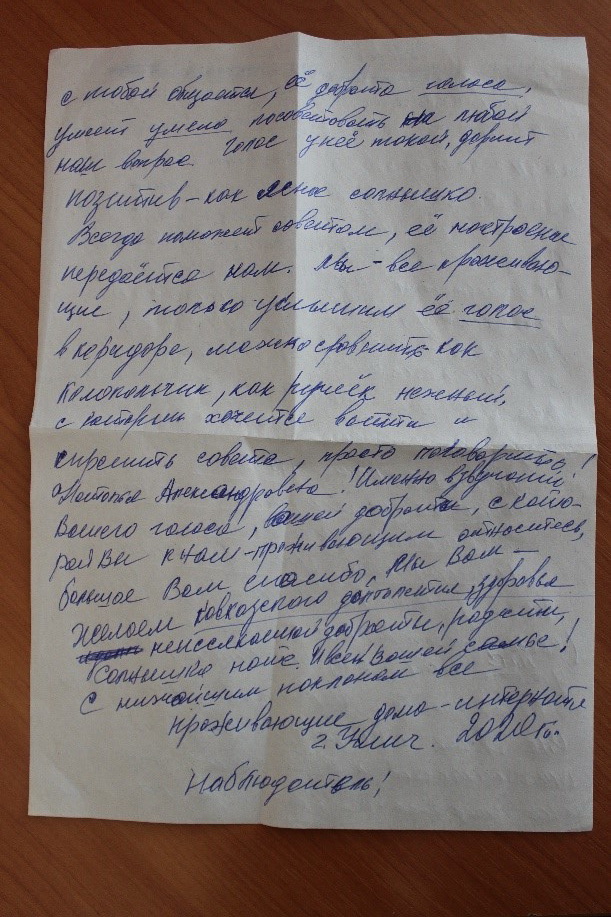 с тобой общается, её доброта голоса,
умеет умело посоветовать на любой
наш вопрос. Голос у неё такой, дарит
позитив – как ясно солнышко.
Всегда поможет советом, её настроение
передаётся нам. Мы – все проживаю-
щие, только услышим её голос
в коридоре, можно сравнить как
колокольчик, как ручеёк нежный,
с которым хочется войти и
спросить совета, просто поговорить!
Наталья Александровна! Именно звучание
Вашего голоса, Вашей доброты, с кото-
рой Вы к нам – проживающим относитесь,
большое Вам спасибо, Мы Вам –
желаем кавказского долголетия, здоровья
неиссякаемой доброты, радости,
солнышко наше. И всей Вашей семье!
С низчайшим поклоном все
проживающие дома-интерната
г. Углич. 2020 г.
Наблюдатель!